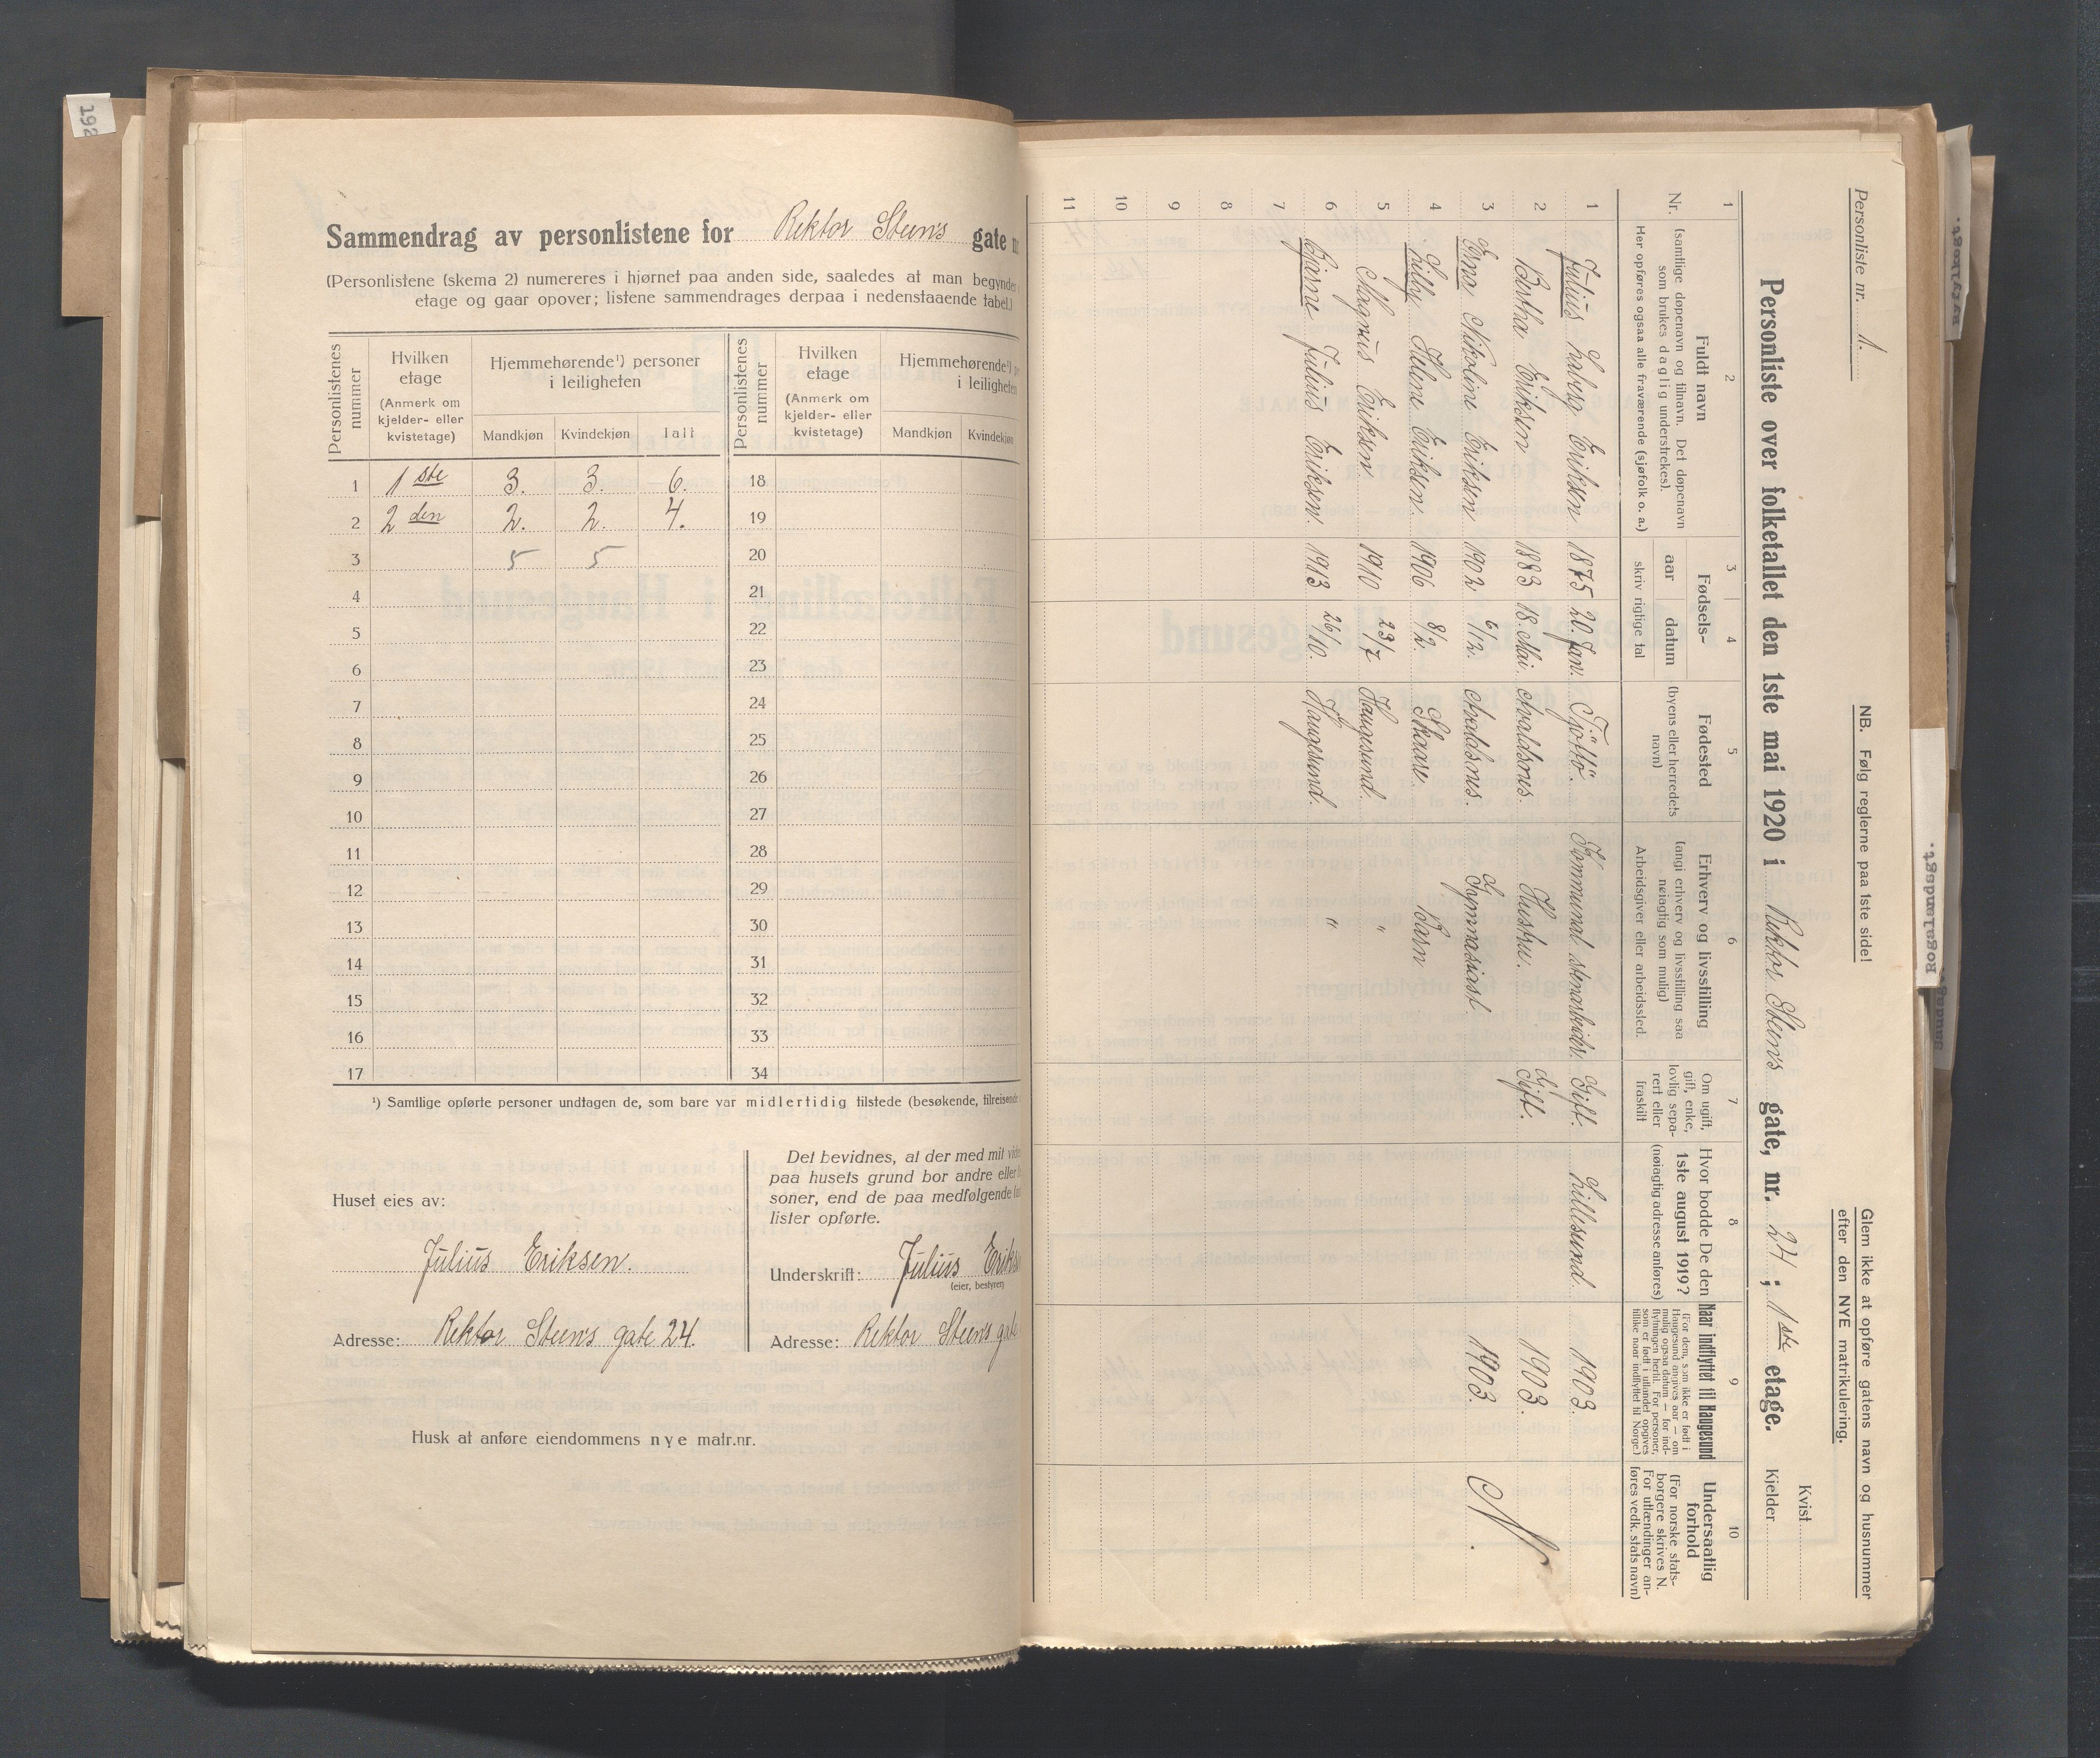 192
Sammendrag av personlistene for Rektor Steens gate n
(Personlistene (skema 2) numereres i hjørnet paa anden side, saaledes at man begynder
etage og gaar opover; listene sammendrages derpaa i nedenstaaende tabel.)
Personlistenes nummer | Hvilken etage (Anmerk om kjelder- eller kvistetage) | Hjemmehørende¹) personer i leiligheten | Personlistenes nummer | Hvilken etage (Anmerk om kjelder- eller kvistetage) | Hjemmehørende¹) pe i leiligheten
Mandkjøn | Kvindekjøn | Ialt | Mandkjøn | Kvindekjøn
1 | 1 ste | 3. | 3. | 6. | 18
2 | 2 den | 2. | 2. | 4. | 19
3 | 5 | 5 | 20
4 | 21
5 | 22
6 | 23
7 | 24
8 | 25
9 | 26
10 | 27
11 | 28
12 | 29
13 | 30
14 | 31
15 | 32
16 | 33
17 | 34
¹) Samtlige opførte personer undtagen de, som bare var midlertidig tilstede (besøkende, tilreisende
Huset eies av:
Julius Eriksen.
Adresse: Rektor Steens gate 24.
Det bevidnes, at der med mit vide
paa husets grund bor andre eller
soner, end de paa medfølgende
lister opførte.
Underskrift: Julius Eriks
(eier, bestyrer)
Adresse: Rektor Steens gate
Husk at anføre eiendommens nye matr.nr.
Personliste nr. 1.
NB. Følg reglerne paa 1ste side!
Glem ikke at opføre gatens navn og husnummer
efter den NYE matrikulering.
Kvist
Personliste over folketallet den 1ste mai 1920 i Rektor Steens gate, nr. 24; 1ste etage.
Kjelder
1 | 2 | 3 | 4 | 5 | 6 | 7 | 8 | 9 | 10
Nr. | Fuldt navn (samtlige døpenavn og tilnavn. Det døpenavn som brukes daglig understrekes). Her opføres ogsaa alle fraværende (sjøfolk o. a.) | Fødsels- aar | datum skriv rigtige tal | Fødested (byens eller herredets navn) | Erhverv og livsstilling (angi erhverv og livsstilling saa nøiagtig som mulig) Arbeidsgiver eller arbeidssted. | Om ugift, gift, enke, lovlig separert eller fraskilt | Hvor bodde De den 1ste august 1919? (nøiagtig adresse anføres) | Naar indflyttet til Haugesund (For dem, som ikke er født i Haugesund angives aar — om mulig ogsaa datum — for indflytningen hertil. For personer, som er født i utlandet opgives tillike naar indflyttet til Norge.) | Undersaatlig forhold (For norske statsborgere skrives N. For utlændinger anføres vedk. stats navn)
1 | Julius Eriksen | 1875 | 20. Jan. | Tjøttø. | Kommunal stenarbeidr. | Gift. | Lillesund. | 1903.
2 | Bertha Eriksen | 1883 | 18. Mai. | Avaldsnes. | Hustru. | Gift. | 1903. | N.
3 | Erna Nikoline Eriksen | 1902. | 6/12. | Avaldsnes. | Gymnasiast | 1903.
4 | Lilly Helene Eriksen. | 1906 | 8/2. | Skaare. | Barn
5 | Magnus Eriksen. | 1910 | 23/7 | Haugesund. | "
6 | Bjarne Julius Eriksen. | 1913 | 26/10. | Haugesund. | "
7
8
9
10
11
Rogalandsgt.